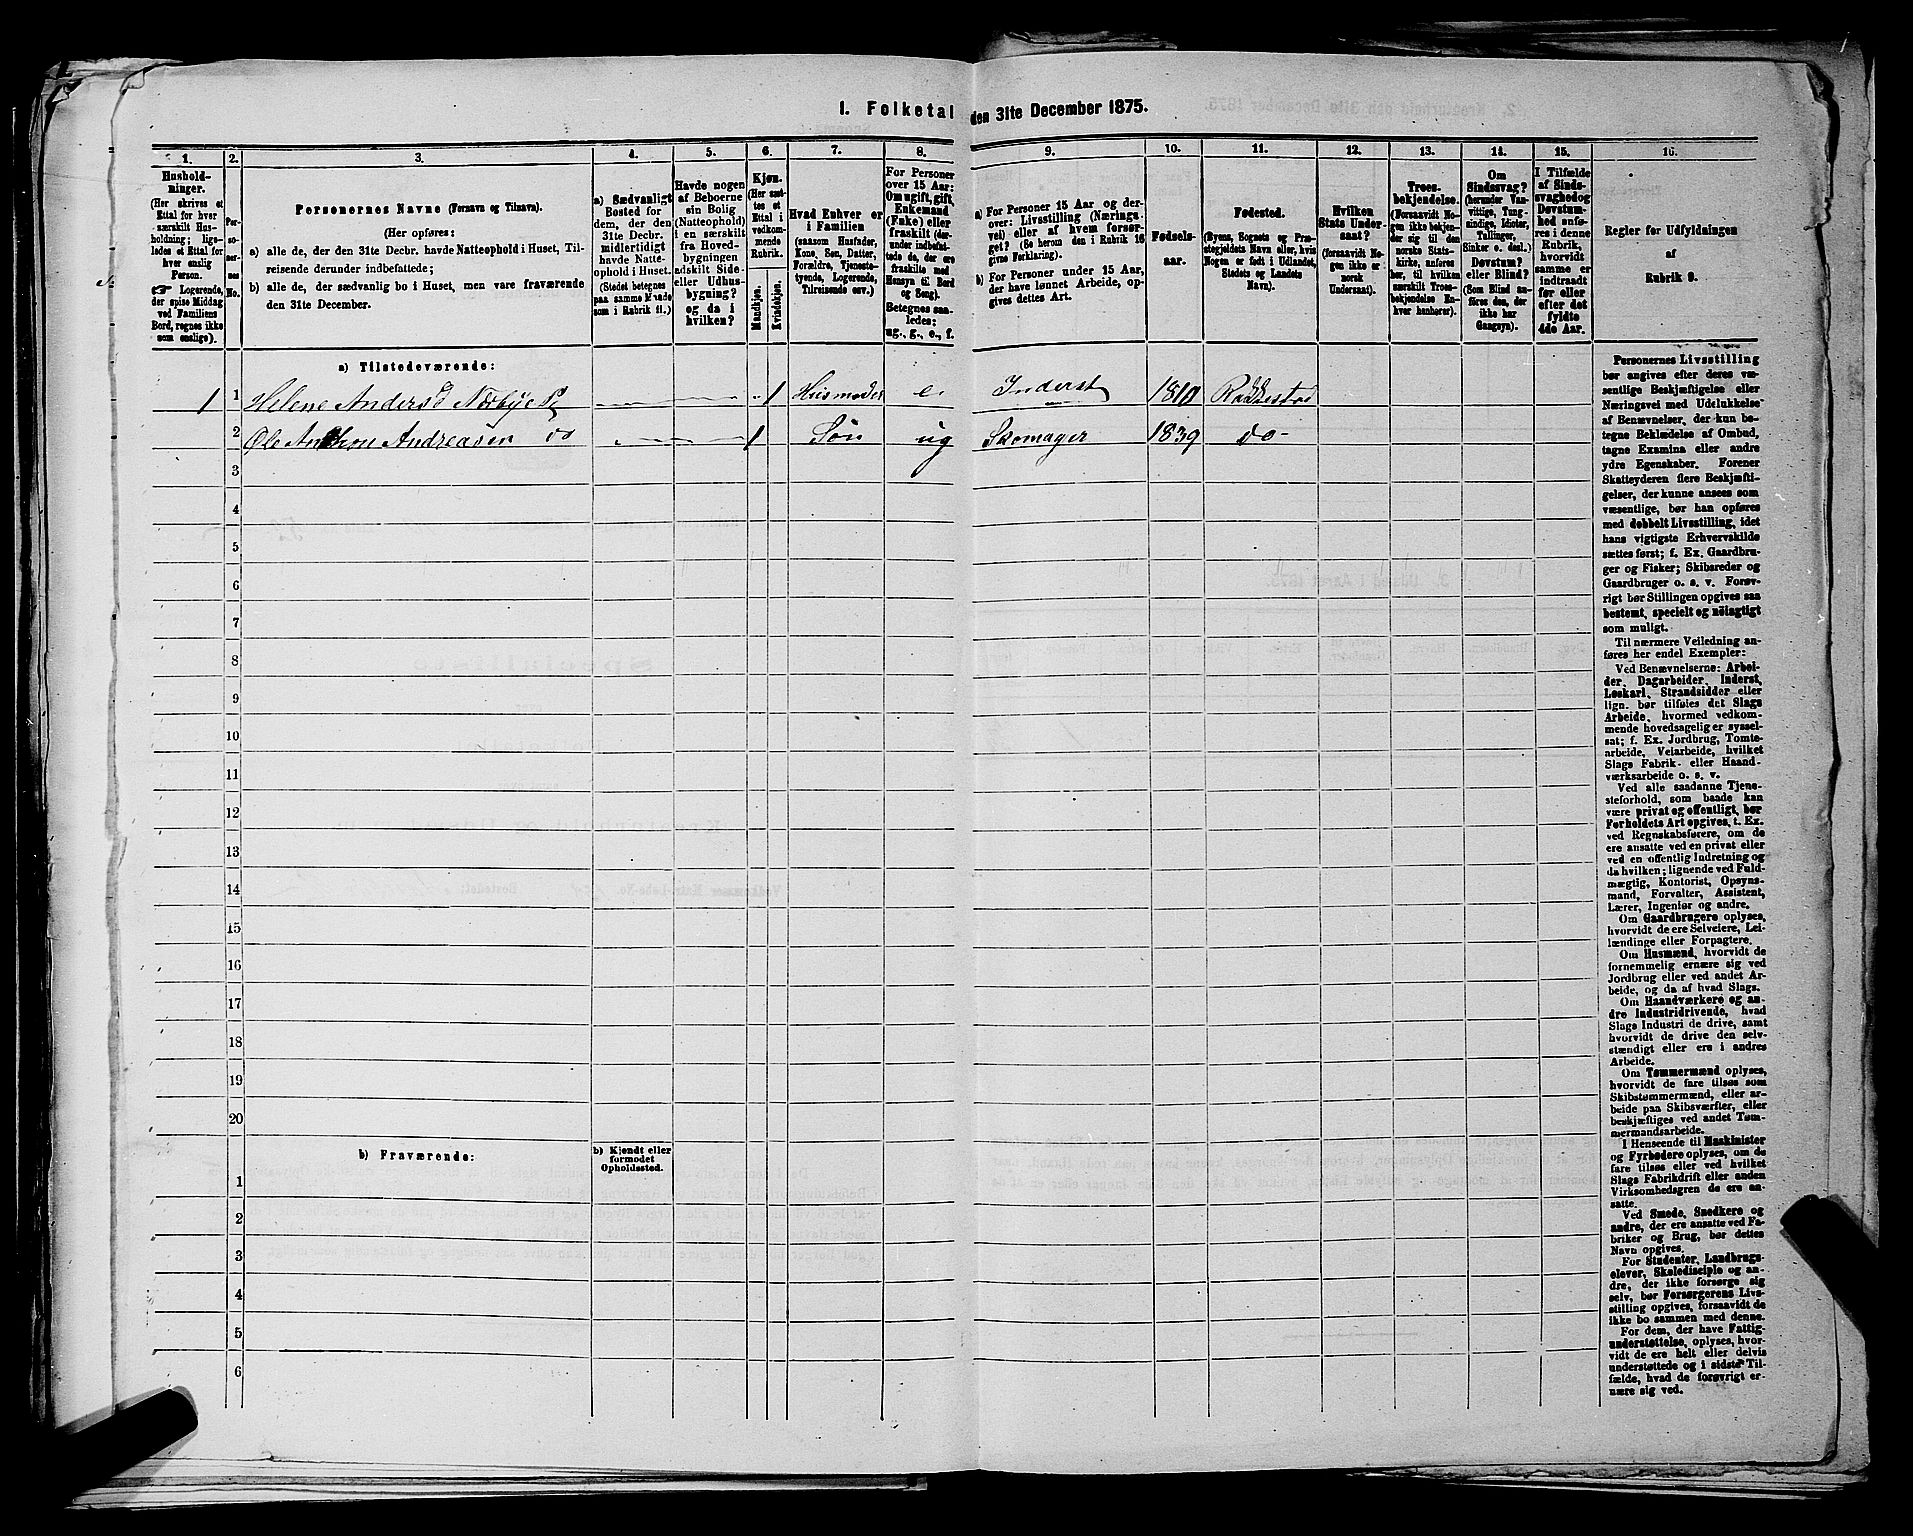 1. Folketal den 31te December 1875.
1. 2. 3. 4. 5. 6. 7. 8. 9. 10. 11. 12. 13. 14. 15. 16.
Hushold-
ninger.
(Her skrives et
Ettal for hver
særskilt Hus-
holdning; lige-
ledes et Ettal for
hver enslig
Person.
☞ Logerende,
der spise Middag
ved Familiens
Bord, regnes ikke
som enslige).
Per-
so-
ner-
nes
No.
Personernes Navne (Fornavn og Tilnavn).
(Her opføres:
a) alle de, der den 31te Decbr. havde Natteophold i Huset, Til-
reisende derunder indbefattede;
b) alle de, der sædvanlig bo i Huset, men vare fraværende
den 31te December.
a) Sædvanligt
Bosted for
dem, der den
31te Decbr.
midlertidigt
havde Natte-
ophold i Huset.
(Stedet betegnes
paa samme Maade
som i Rubrik 11.)
Havde nogen
af Beboerne
sin Bolig
(Natteophold)
i en særskilt
fra Hoved-
bygningen
adskilt Side-
eller Udhus-
bygning?
og da i
hvilken?
Kjøn.
(Her sæt-
tes et
Ettal i
vedkom-
mende
Rubrik.
Mandkjøn.
Kvindekjøn.
Hvad Enhver er
i Familien
(saasom Husfader,
Kone, Søn, Datter,
Forældre, Tjeneste-
tyende, Logerende,
Tilreisende osv.)
For Personer
over 15 Aar:
Om ugift, gift,
Enkemand
(Enke) eller
fraskilt (der-
under indbefat-
tede de, der ere
fraskilte med
Hensyn til Bord
og Seng).
Betegnes saa-
ledes:
ug., g., e., f.
a) For Personer 15 Aar og der-
over: Livsstilling (Nærings-
vei) eller af hvem forsør-
get? (Se herom den i Rubrik 16
givne Forklaring).
b) For Personer under 15 Aar,
der have lønnet Arbeide, op-
gives dettes Art.
Fødsels-
aar.
Fødested.
(Byens, Sognets og Præ-
stegjeldets Navn eller, hvis
Nogen er født i Udlandet,
Stedets og Landets
Navn).
Hvilken
Stats Under-
saat?
(forsaavidt No-
gen ikke er
norsk
Undersaat).
Troes-
bekjendelse.
(Forsaavidt No-
gen ikke bekjen-
der sig til den
norske Stats-
kirke, anføres
her, til hvilken
særskilt Troes-
bekjendelse En-
hver henhører).
Om
Sindssvag?
(herunder Van-
vittige, Tung-
sindige, Idioter,
Tullinger,
Sinker o. desl.)
Døvstum?
eller Blind?
(Som Blind an-
føres den, der
ikke har
Gangsyn).
I Tilfælde
af Sinds-
svaghed og
Døvstum-
hed anfø-
res i denne
Rubrik,
hvorvidt
samme er
indtraadt
før eller
efter det
fyldte
4de Aar.
Regler for Udfyldningen
af
Rubrik 9.
a) Tilstedeværende:
1 1 Helene Andersd Nærbye 1 Husmoder e. Inderst 1810 Rakkestad
2 Ole Anthon Andreasen do 1 Søn ug Skomager 1839 do
3
4
5
6
7
8
9
10
11
12
13
14
15
16
17
18
19
20
b) Fraværende:
b) Kjendt eller
formodet
Opholdssted.
1
2
3
4
5
6
Personernes Livsstilling
bør angives efter deres væ-
sentlige Beskjæftigelse eller
Næringsvei med Udelukkelse
af Benævnelser, der kun be-
tegne Beklædelse af Ombud,
tagne Examina eller andre
ydre Egenskaber. Forener
Skatteyderen flere Beskjæfti-
gelser, der kunne ansees som
væsentlige, bør han opføres
med dobbelt Livsstilling, idet
hans vigtigste Erhvervskilde
sættes først; f. Ex. Gaardbru-
ger og Fisker; Skibsreder og
Gaardbruger o. s. v. Forøv-
rigt bør Stillingen opgives saa
bestemt, specielt og nøiagtigt
som muligt.
Til nærmere Veiledning an-
føres her endel Exempler:
Ved Benævnelserne: Arbei-
der, Dagarbeider, Inderst,
Løskarl, Strandsidder eller
lign. bør tilføies det Slags
Arbeide, hvormed vedkom-
mende hovedsagelig er syssel-
sat; f. Ex. Jordbrug, Tomte-
arbeide, Veiarbeide, hvilket
Slags Fabrik- eller Haand-
værksarbeide o. s. v.
Ved alle saadanne Tjene-
steforhold, som baade kan
være privat og offentligt, bør
Forholdets Art opgives, t. Ex.
ved Regnskabsførere, om de
ere ansatte ved en privat eller
ved en offentlig Indretning og
da hvilken; lignende ved Fuld-
mægtig, Kontorist, Opsyns-
mand, Forvalter, Assistent,
Lærer, Ingeniør og andre.
Om Gaardbrugere oplyses,
hvorvidt de ere Selveiere, Lei-
lændinge eller Forpagtere.
Om Husmænd, hvorvidt de
fornemmelig ernære sig ved
Jordbrug eller ved andet Ar-
beide, og da af hvad Slags.
Om Haandværkere og an-
dre Industridrivende, hvad
Slags Industri de drive, samt
hvorvidt de drive den selv-
stændigt eller ere i andres
Arbeide.
Om Tømmermænd oplyses,
hvorvidt de fare tilsøs som
Skibstømmermænd, eller ar-
beide paa Skibsværfter, eller
beskjæftiges ved andet Tøm-
mermandsarbeide.
I Henseende til Maskinister
og Fyrbødere oplyses, om de
fare tilsøs eller ved hvilket
Slags Fabrikdrift eller anden
Virksomhedsgren de ere an-
satte.
Ved Smede, Snedkere og
andre, der ere ansatte ved Fa-
briker og Brug, bør dettes
Navn opgives.
For Studenter, Landbrugs-
elever, Skoledisciple og an-
dre, der ikke forsørge sig
selv, bør Forsørgerens Livs-
stilling opgives, forsaavidt de
ikke bo sammen med denne.
For dem, der have Fattig-
understøttelse, oplyses, hvor-
vidt de ere helt eller delvis
understøttede og i sidste Til-
fælde, hvad de forøvrigt er-
nære sig ved.